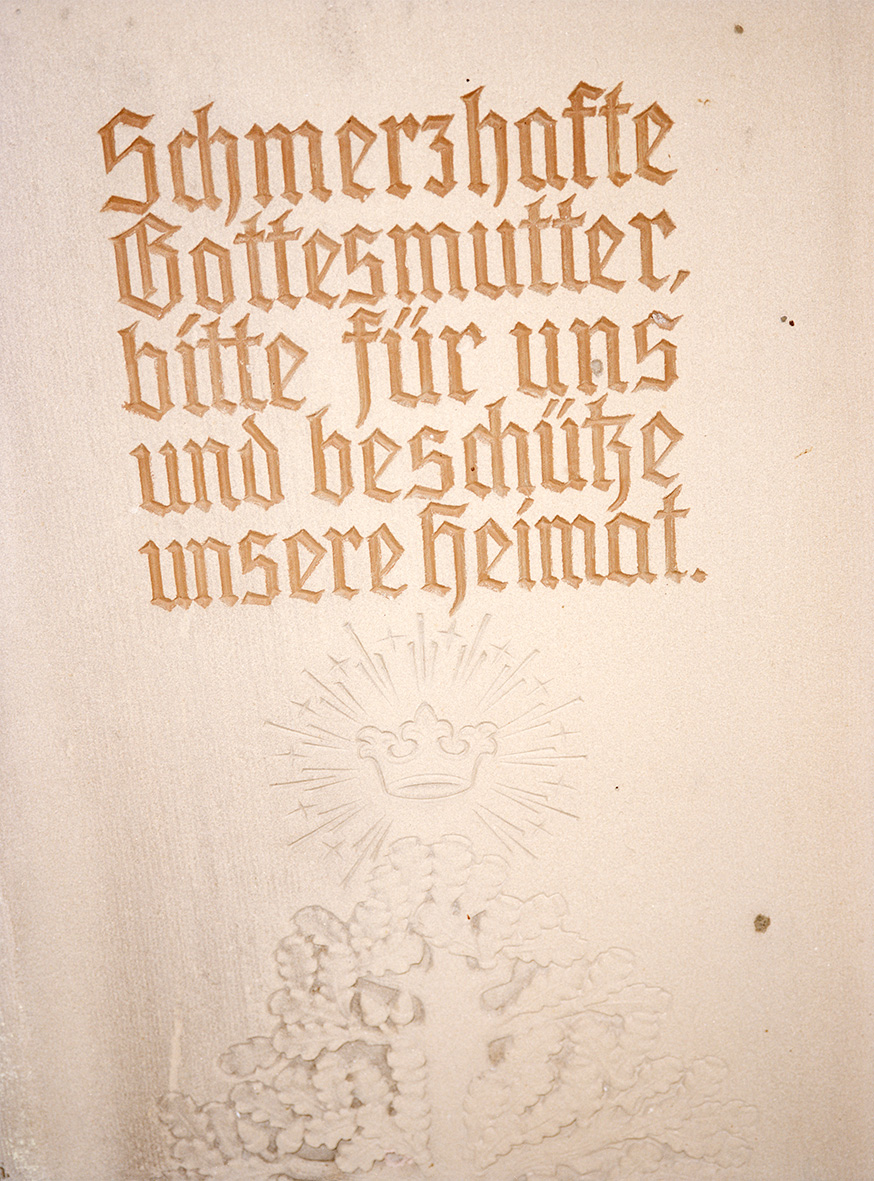 Schmerzhafte
Gottesmutter,
bitte für uns
und beschütze
unsere Heimat.